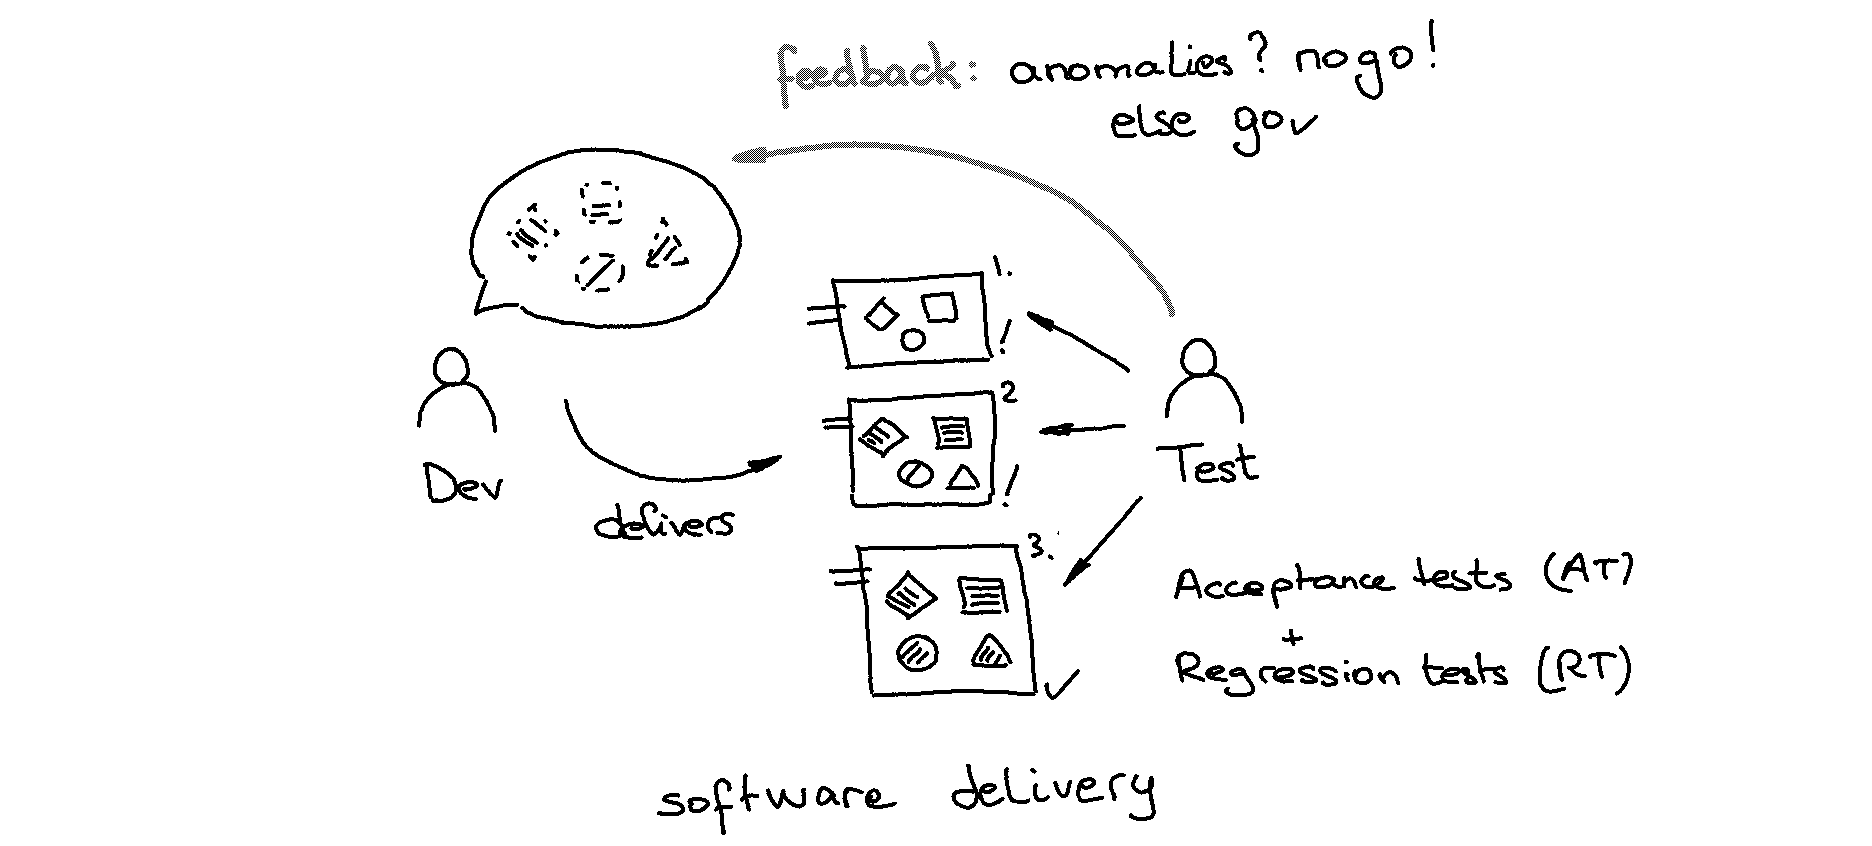 feedback: anomalies? no go!
else go✓
1.
!
2
!
3.
✓
Dev
delivers
Test
Acceptance tests (AT)
+
Regression tests (RT)
software delivery